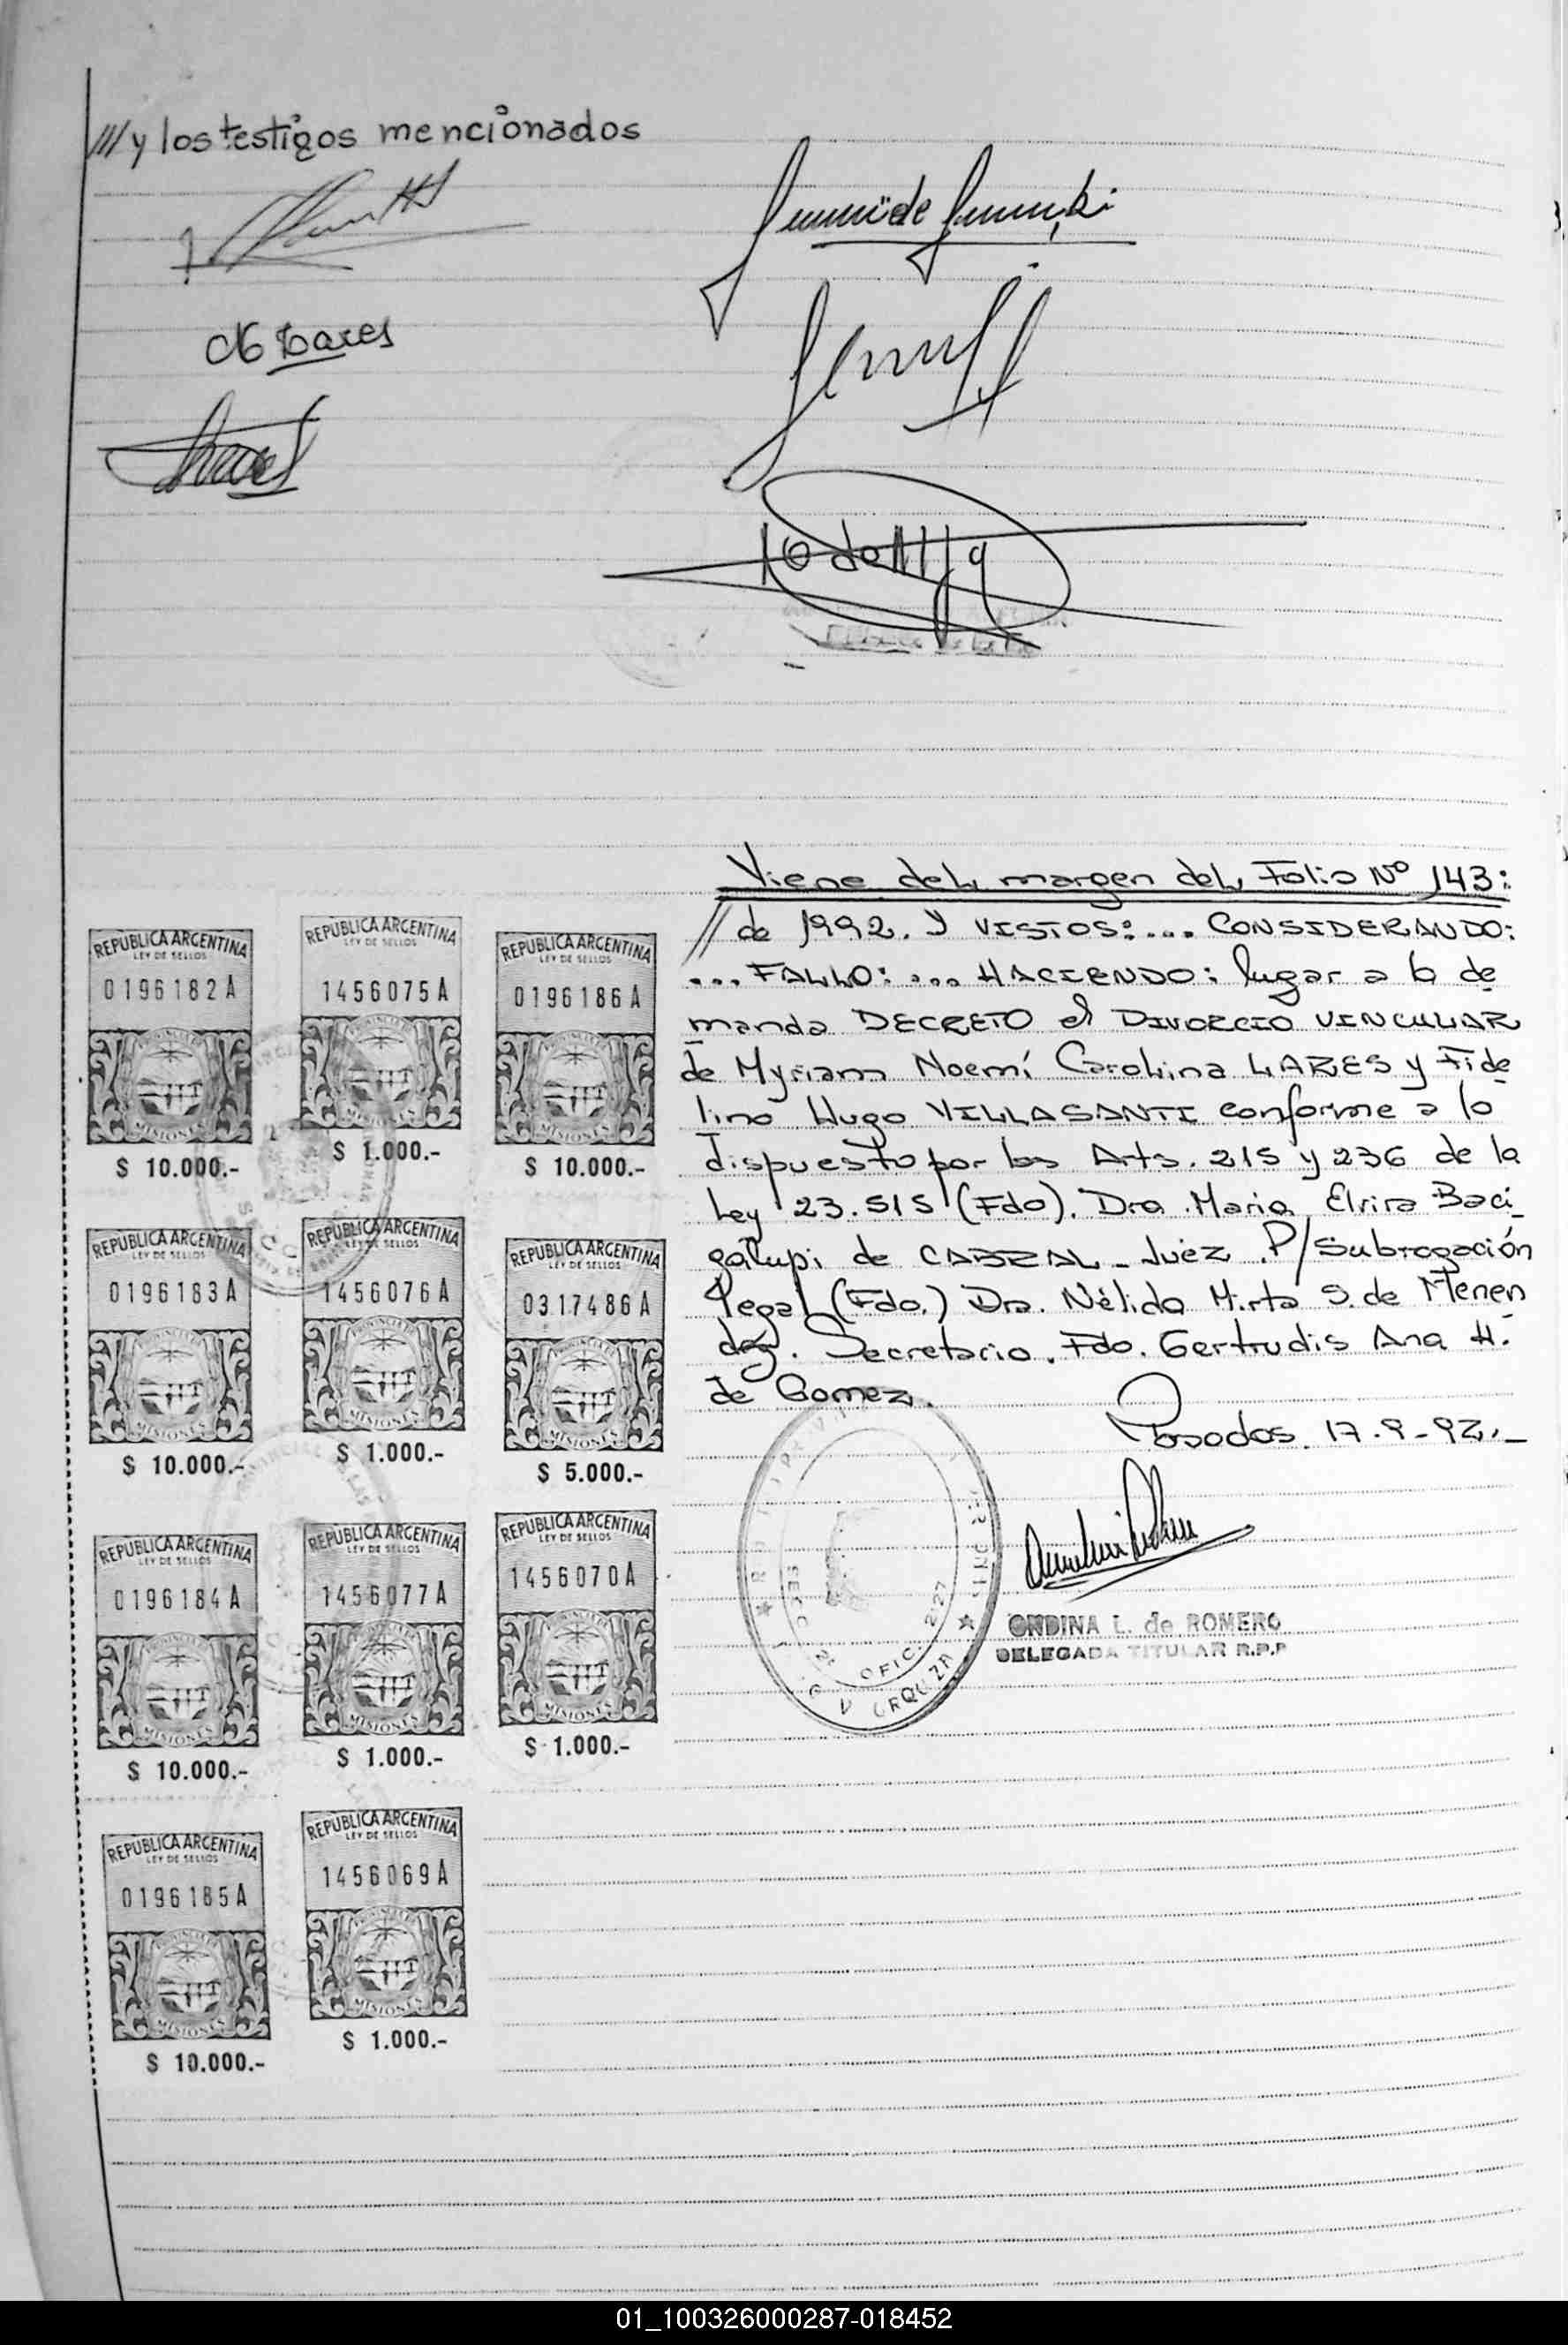 /// y los testigos mencionados
Lares
Viene del margen del Folio Nº 143:
// de 1992. Y VISTOS:... CONSIDERANDO:
... FALLO:... HACIENDO: lugar a la de
manda DECRETO el DIVORCIO VINCULAR
de Myriam Noemí Carolina LARES y Fide
lino Hugo VILLASANTI conforme a lo
dispuesto por los Arts. 215 y 236 de la
Ley 23.515 (Fdo). Dra. Maria Elvira Baci_
galupi de CABRAL - Juez. P/Subrogación
legal (Fdo.) Dra. Nélida Mirta S. de Menen
dez. Secretario. Fdo. Gertrudis Ana H.
de Gomez.
Posadas 17.9-92.-
ONDINA L. de ROMERO
DELEGADA TITULAR R.P.P
OFIC. 227
URQUIZA
REPUBLICA ARGENTINA
LEY DE SELLOS
0196182 A
MISIONES
$ 10.000.-
REPUBLICA ARGENTINA
LEY DE SELLOS
1456075 A
MISIONES
$ 1.000.-
REPUBLICA ARGENTINA
LEY DE SELLOS
0196186 A
MISIONES
$ 10.000.-
REPUBLICA ARGENTINA
LEY DE SELLOS
0196183 A
MISIONES
$ 10.000.-
REPUBLICA ARGENTINA
LEY DE SELLOS
1456076 A
MISIONES
$ 1.000.-
REPUBLICA ARGENTINA
LEY DE SELLOS
0317486 A
MISIONES
$ 5.000.-
REPUBLICA ARGENTINA
LEY DE SELLOS
0196184 A
MISIONES
$ 10.000.-
REPUBLICA ARGENTINA
LEY DE SELLOS
1456077 A
MISIONES
$ 1.000.-
REPUBLICA ARGENTINA
LEY DE SELLOS
1456070 A
MISIONES
$ 1.000.-
REPUBLICA ARGENTINA
LEY DE SELLOS
0196185 A
MISIONES
$ 10.000.-
REPUBLICA ARGENTINA
LEY DE SELLOS
1456069 A
MISIONES
$ 1.000.-
01_100326000287-018452